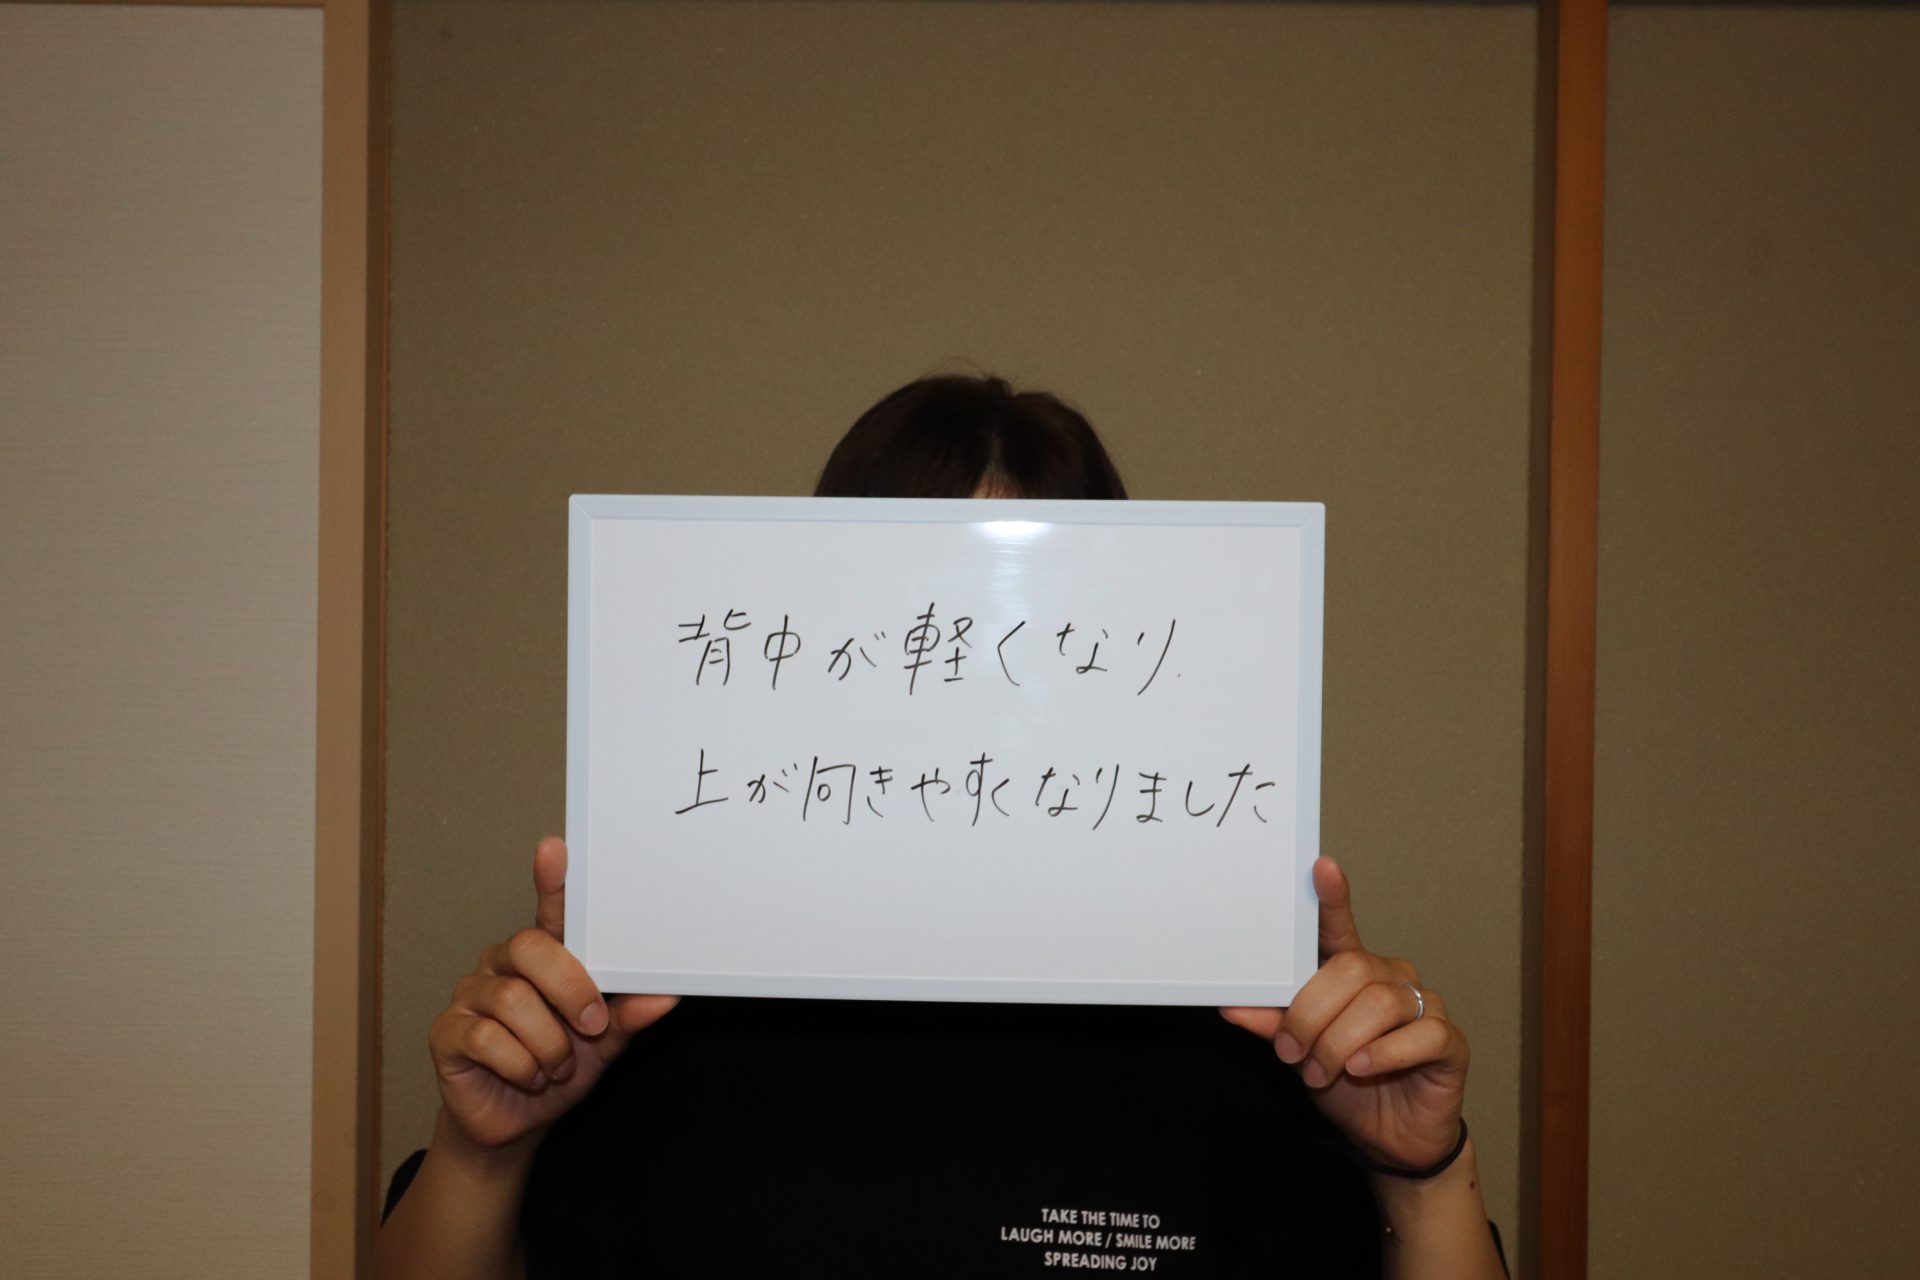 背中が軽くなり.
上が向きやすくなりました
TAKE THE TIME TO
LAUGH MORE / SMILE MORE
SPREADING JOY